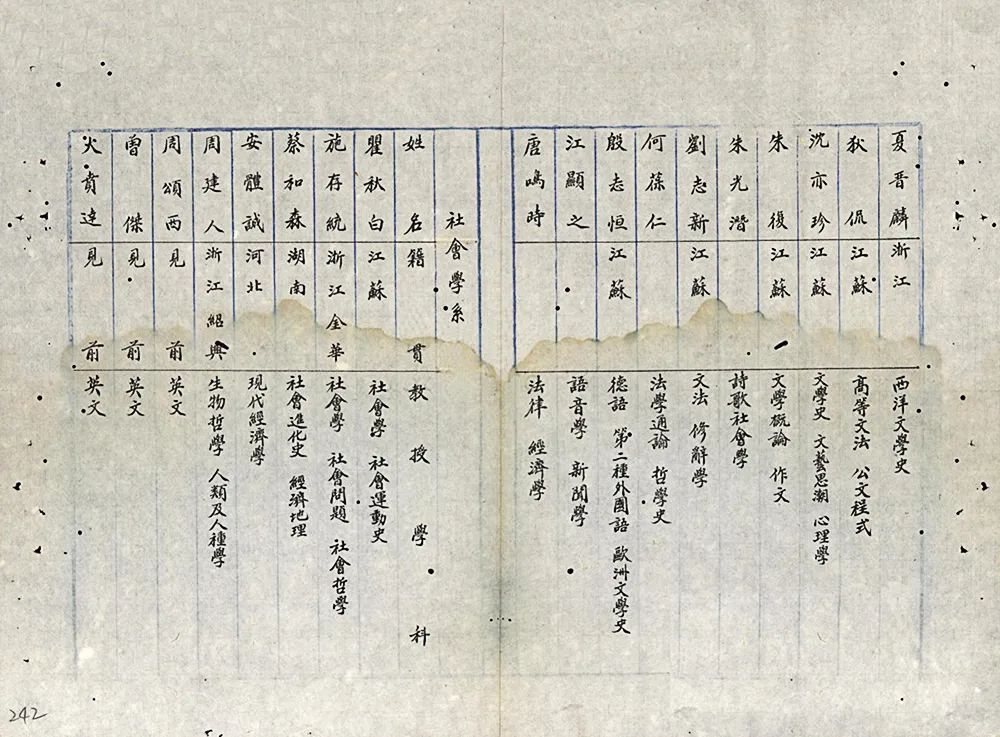 夏晋麟 浙江 西洋文學史
狄侃 江蘇 高等文法 公文程式
沈亦珍 江蘇 文學史 文藝思潮 心理學
朱復 江蘇 文學概論 作文
朱光潛 詩歌社會學
劉志新 江蘇 文法 修辭學
何葆仁 法學通論 哲學史
殷志恒 江蘇 德語 第二種外國語 歐洲文學史
江顯之 語音學 新聞學
唐鳴時 法律 經濟學
社會學系
姓名 籍貫 教授學科
瞿秋白 江蘇 社會學 社會運動史
施存統 浙江金華 社會學 社會問題 社會哲學
蔡和森 湖南 社會進化史 經濟地理
安體誠 河北 現代經濟學
周建人 浙江紹興 生物哲學 人類及人種學
周頌西 見前 英文
曾傑 見前 英文
火賁達 見前 英文
242